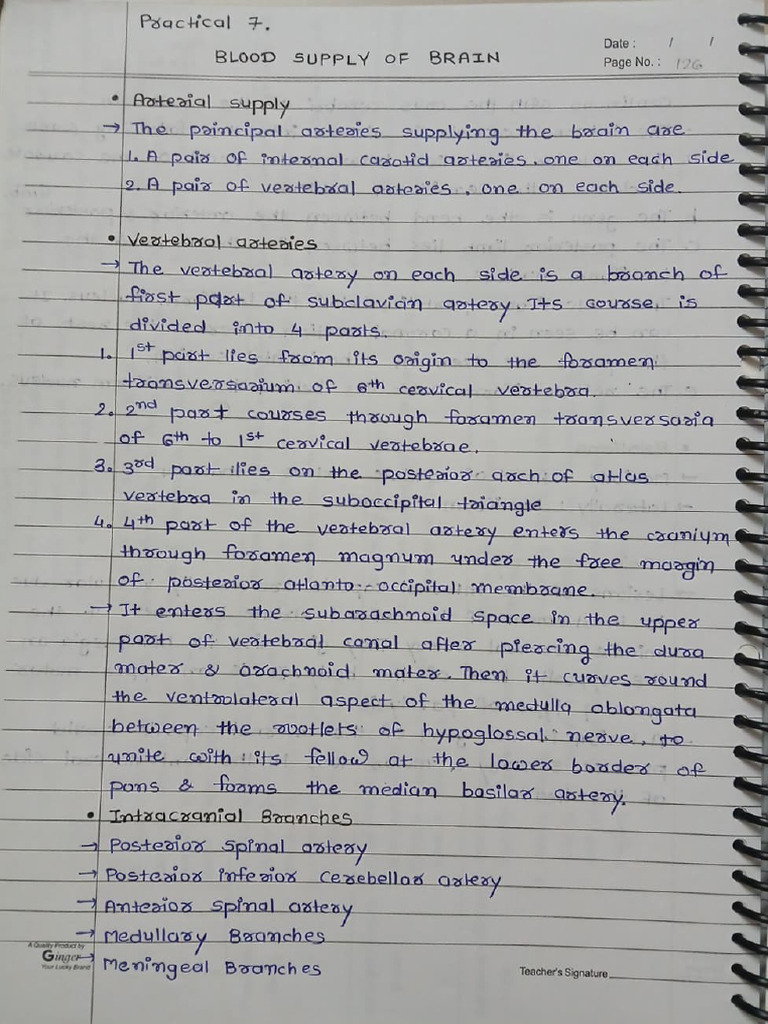 Practical 7.
BLOOD SUPPLY OF BRAIN
Date : / /
Page No. : 126
• Arterial supply
→ The principal arteries supplying the brain are
1. A pair of internal carotid arteries, one on each side
2. A pair of vertebral arteries, one on each side.
• Vertebral arteries
→ The vertebral artery on each side is a branch of
first part of subclavian artery. Its course is
divided into 4 parts.
1. 1st part lies from its origin to the foramen
transversarium of 6th cervical vertebra.
2. 2nd part courses through foramen transversaria
of 6th to 1st cervical vertebrae.
3. 3rd part lies on the posterior arch of atlas
vertebra in the suboccipital triangle
4. 4th part of the vertebral artery enters the cranium
through foramen magnum under the free margin
of posterior atlanto-occipital membrane.
→ It enters the subarachnoid space in the upper
part of vertebral canal after piercing the dura
mater & arachnoid mater. Then it curves round
the ventrolateral aspect of the medulla oblongata
between the rootlets of hypoglossal nerve, to
unite with its fellow at the lower border of
pons & forms the median basilar artery.
• Intracranial Branches
→ Posterior spinal artery
→ Posterior inferior cerebellar artery
→ Anterior spinal artery
→ Medullary Branches
→ Meningeal Branches
A Quality Product by
Ginger
Your Lucky Brand
Teacher's Signature